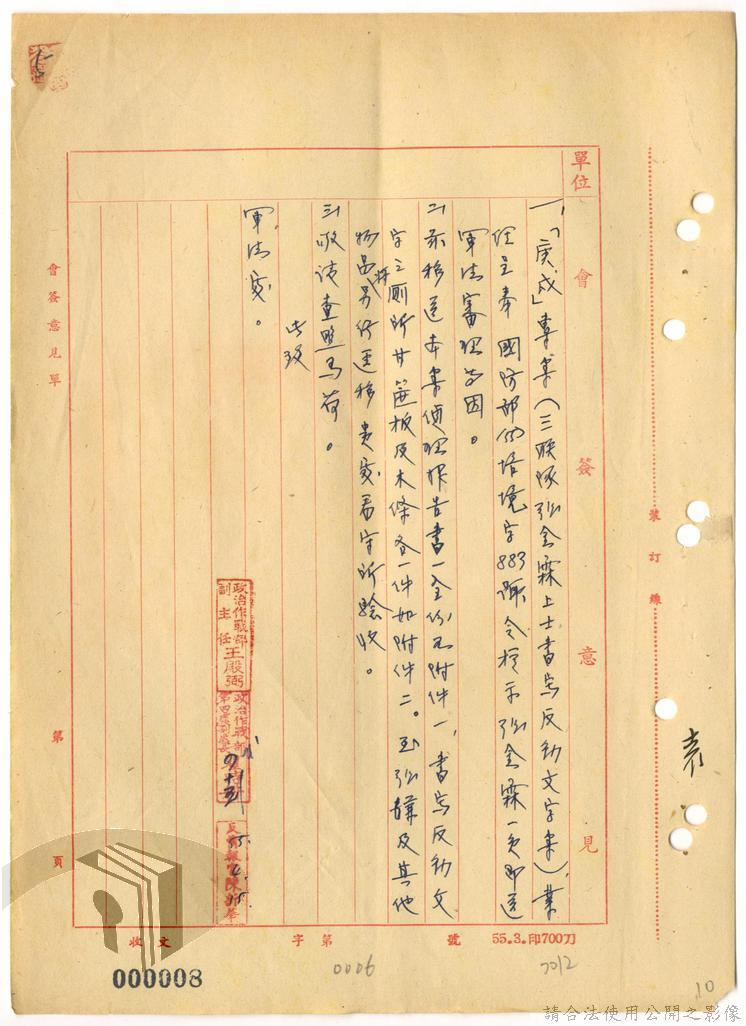 單位
會簽意見
一、「庚戌」專案（三聯隊張金霖上士書寫反動文字案）業
經呈奉 國防部(55)培境字883號令指示張金霖一員即送
軍法審理等因。
二、茲移送本案偵理報告書一全份（如附件一），書寫反動文
字之厠所甘蔗板及木條各一件如附件二。至張嫌及其他
物品另行逕移 貴處看守所驗收。
三、敬請查照為荷。
此致
軍法處。
政治作戰部
副主任王殿弼
政治作戰部
第四處副處長
會簽意見單
第 頁
裝訂線
收文 字第 號
55.3.印700刀
000008
0006
7012
10
請合法使用公開之影像